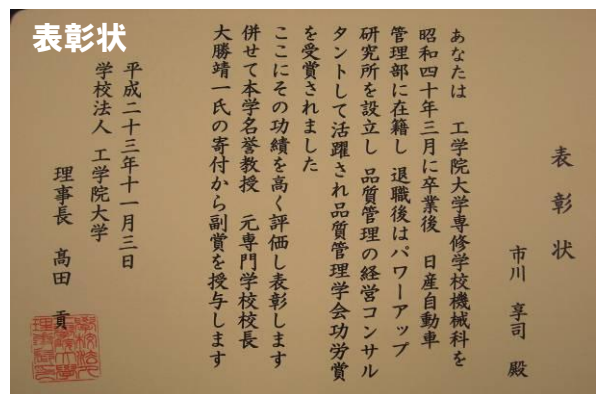 表彰状
表彰状
市川 享司 殿
あなたは 工学院大学専修学校機械科を
昭和四十年三月に卒業後 日産自動車
管理部に在籍し 退職後はパワーアップ
研究所を設立し 品質管理の経営コンサル
タントして活躍され品質管理学会功労賞
を受賞されました
ここにその功績を高く評価し表彰します
併せて本学名誉教授 元専門学校校長
大勝靖一氏の寄付から副賞を授与します
平成二十三年十一月三日
学校法人 工学院大学
理事長 髙田 貢